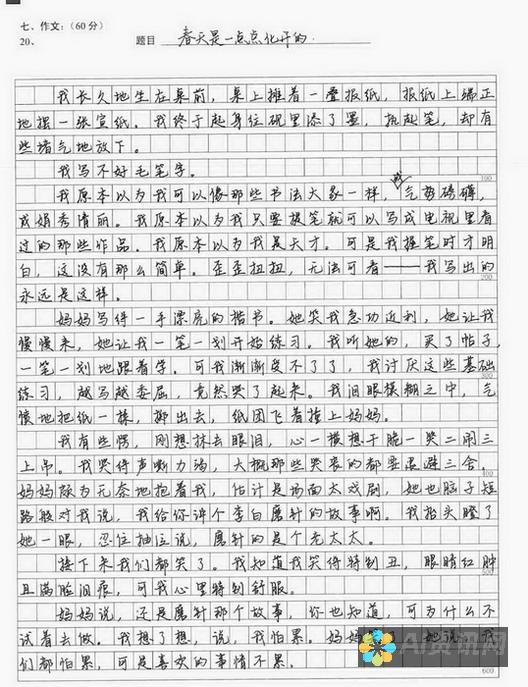 七、作文：（60分）
20、 题目 春天是一点点化开的.
我长久地坐在桌前，桌上摊着一叠报纸，报纸上端正
地摆一张宣纸。我终于起身往砚里添了墨，执起笔，却有
些堵气地放下。
我写不好毛笔字。
100
我原本以为我可以像那些书法大家一样，或气势磅礴，
或娟秀清丽。我原本以为我只要提笔就可以写成电视里看
过的那些作品。我原本以为我是天才。可是我提笔时才明
白，这没有那么简单。歪歪扭扭，无法可看——我写出的
200
永远是这样。
妈妈写得一手漂亮的楷书。她笑我急功近利，她让我
慢慢来，她让我一笔一划开始练习。我听她的，买了帖子，
一笔一划地跟着学。可我渐渐受不了了，我讨厌这些基础
300
练习，越写越委屈，竟然哭了起来。我泪眼模糊之中，气
愤地把纸一揉，掷出去，纸团飞着撞上妈妈。
我有些愣，刚想抹去眼泪，心一横想干脆一哭二闹三
上吊。我哭得声嘶力竭，大概那些哭丧的都要退避三舍。
400
妈妈颇为无奈地抱着我，估计是场面太戏剧，她也脑子短
路般对我说，我给你讲个李白磨针的故事啊。我抬头瞪了
她一眼，忍住抽泣说，磨针的是个老太太。
接下来我们都笑了。我知道我笑得特别丑，眼睛红肿
500
且满脸泪痕，可我心里特别舒服。
妈妈说，还是磨针那个故事，你也知道，可为什么不
试着去做。我想了想，说，我怕累。妈妈 她说，我
们都怕累，可是喜欢的事情不累。
600
AI资讯网